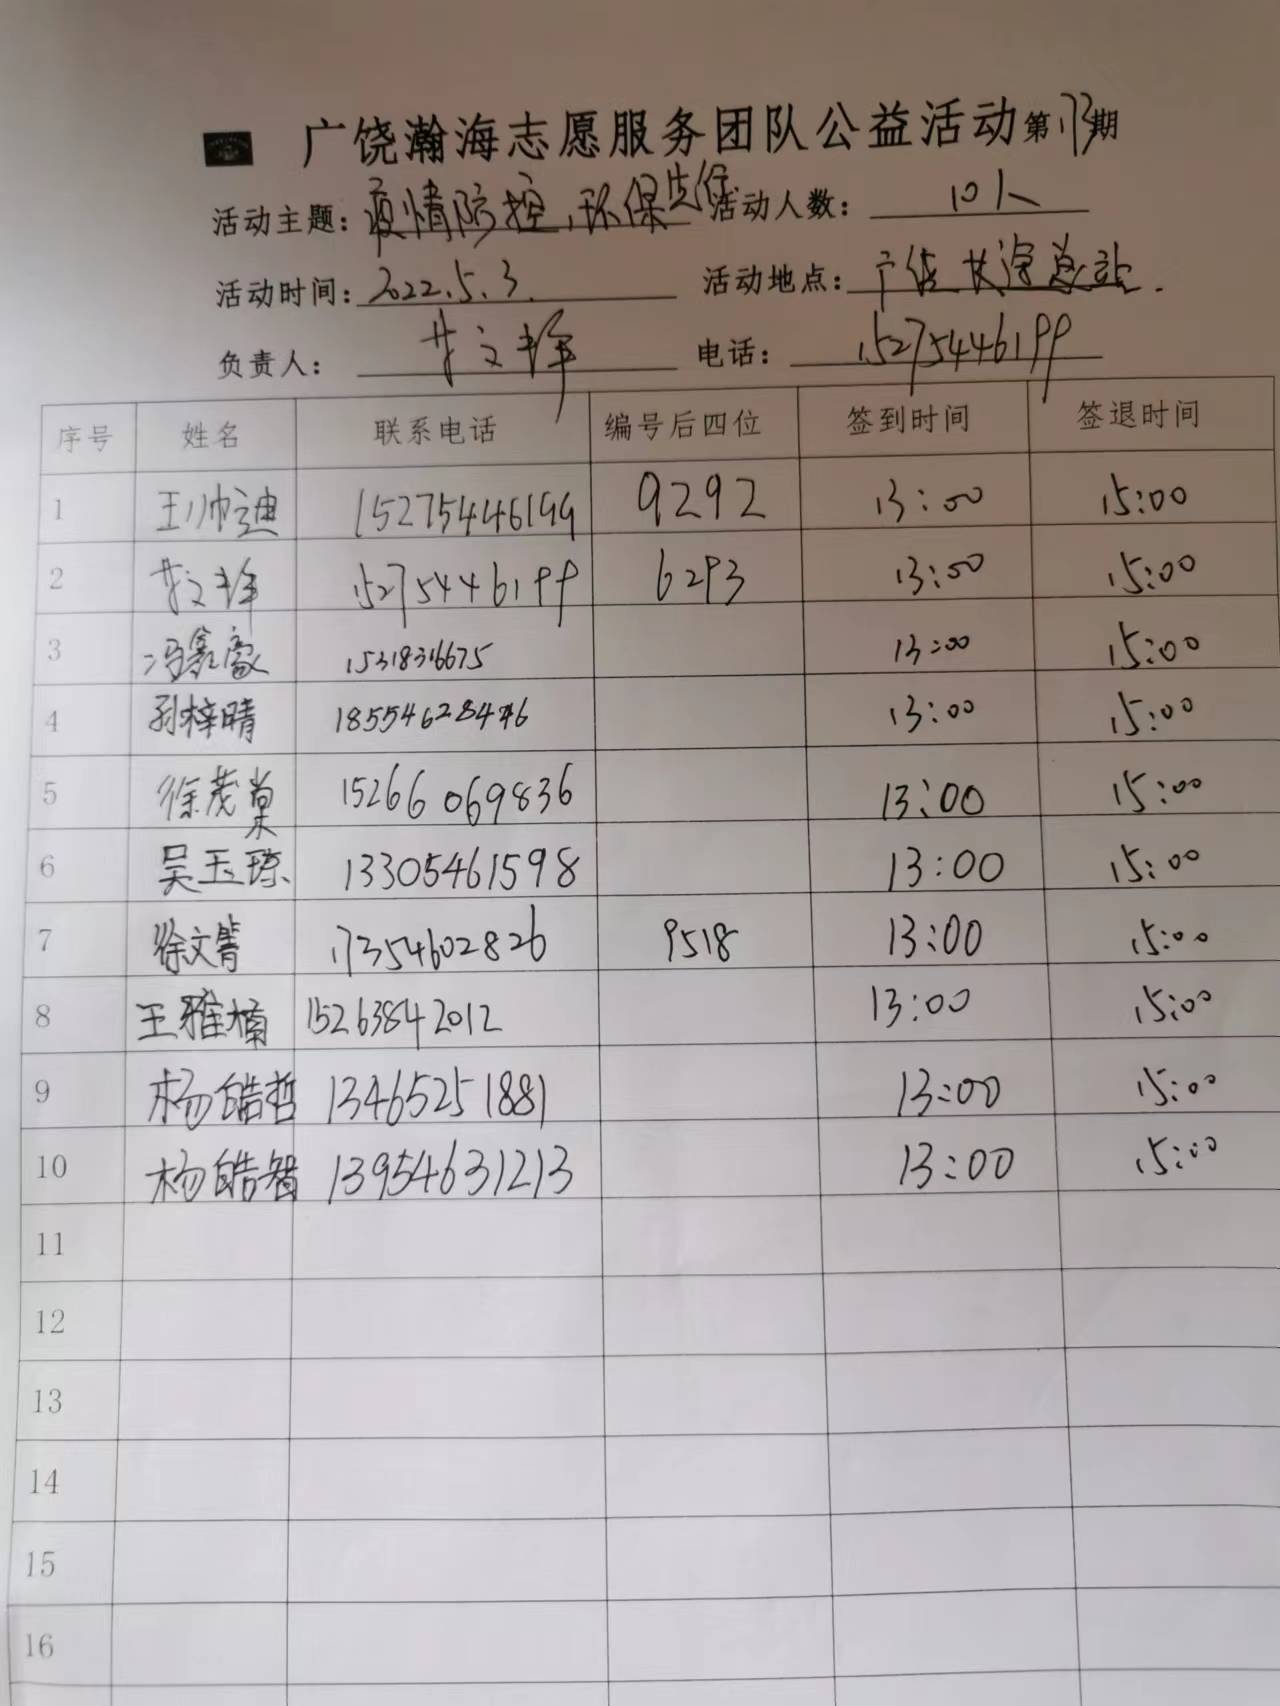 广饶瀚海志愿服务团队公益活动第173期
活动主题：疫情防控，环保先锋 活动人数：10人
活动时间：2022.5.3. 活动地点：广饶 总站.
负责人： 电话：15275446199
序号 姓名 联系电话 编号后四位 签到时间 签退时间
1 王帅迪 15275446199 9292 13:00 15:00
2 15275446199 6293 13:00 15:00
3 冯鑫豪 15318316675 13:00 15:00
4 孙梓晴 13:00 15:00
5 徐茂棠 15266069836 13:00 15:00
6 吴玉琼 13305461598 13:00 15:00
7 徐文菁 17354602826 9518 13:00 15:00
8 王雅楠 15263842012 13:00 15:00
9 杨皓哲 13465251881 13:00 15:00
10 杨皓智 13954631213 13:00 15:00
11
12
13
14
15
16